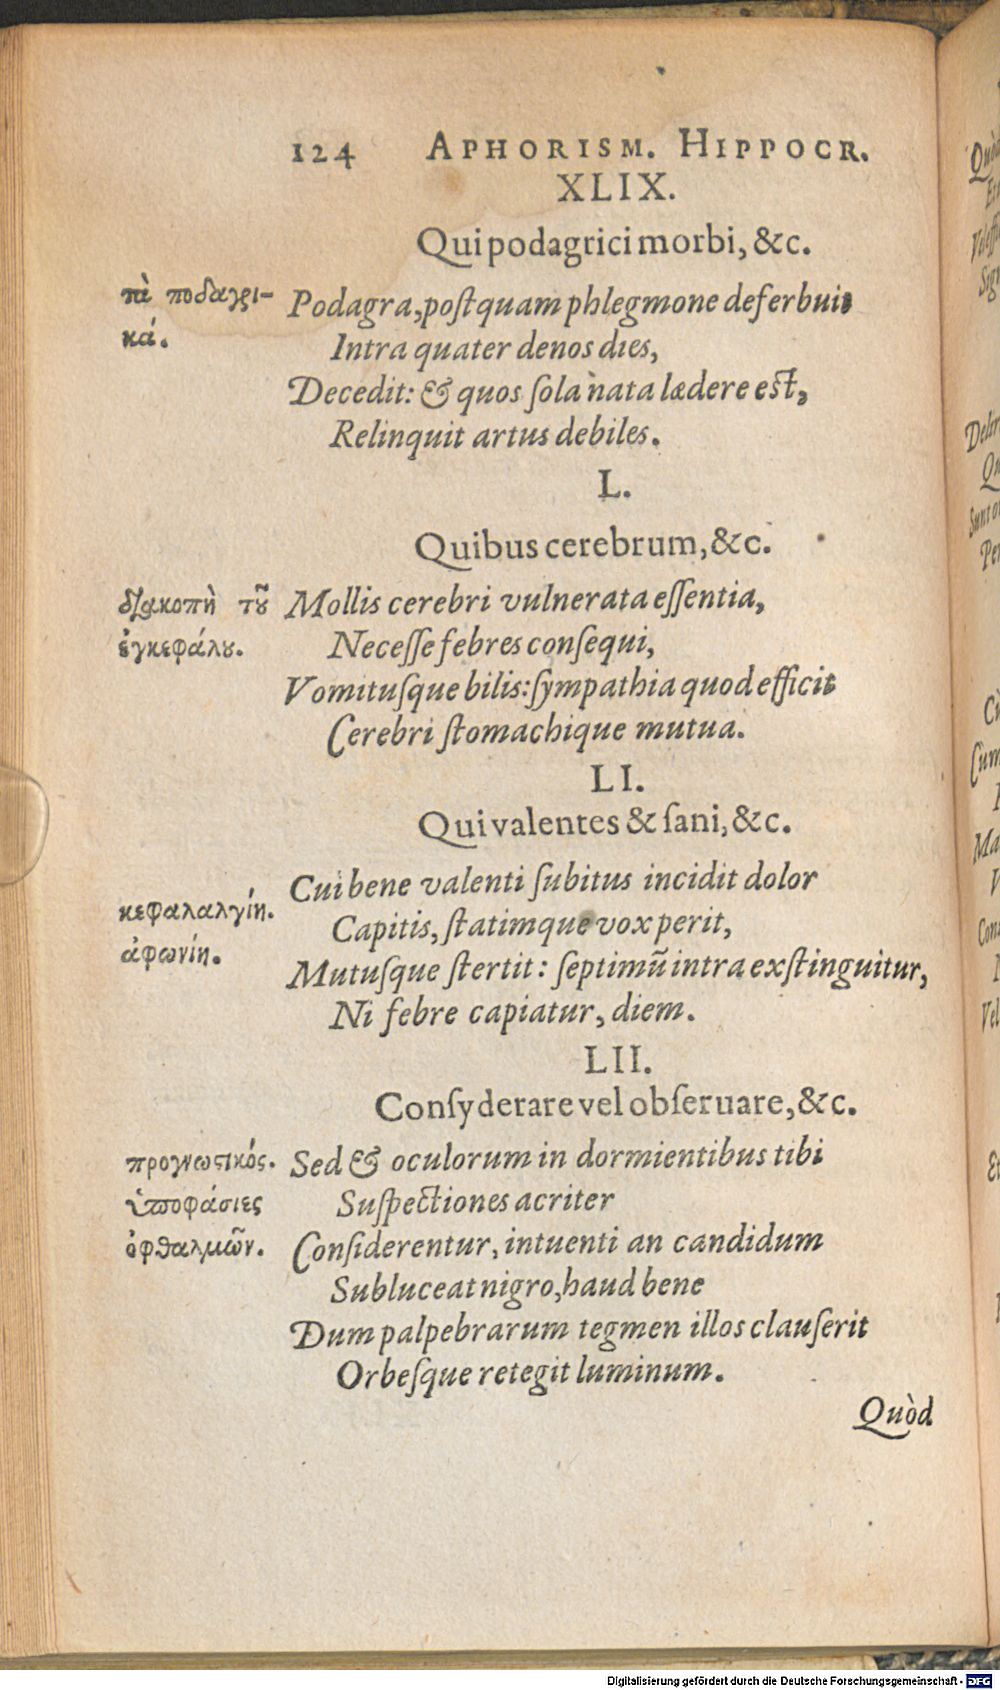 124 APHORISM. HIPPOCR.
XLIX.
Qui podagrici morbi, &c.
τὰ ποδαγρι-
κά.
Podagra, poſtquam phlegmone deferbuit
Intra quater denos dies,
Decedit: & quos ſola nata lædere eſt,
Relinquit artus debiles.
L.
Quibus cerebrum, &c.
διακοπὴ τοῦ
ἐγκεφάλου.
Mollis cerebri vulnerata eſſentia,
Neceſſe febres conſequi,
Vomituſque bilis: ſympathia quod efficit
Cerebri ſtomachique mutua.
LI.
Qui valentes & ſani, &c.
κεφαλαλγίη.
ἀφωνίη.
Cui bene valenti ſubitus incidit dolor
Capitis, ſtatimque vox perit,
Mutuſque ſtertit: ſeptimū intra exſtinguitur,
Ni febre capiatur, diem.
LII.
Conſyderare vel obſeruare, &c.
προγνωστικός.
ὑποφάσιες
ὀφθαλμῶν.
Sed & oculorum in dormientibus tibi
Suſpectiones acriter
Conſiderentur, intuenti an candidum
Subluceat nigro, haud bene
Dum palpebrarum tegmen illos clauſerit
Orbeſque retegit luminum.
Quòd
Digitalisierung gefördert durch die Deutsche Forschungsgemeinschaft - DFG